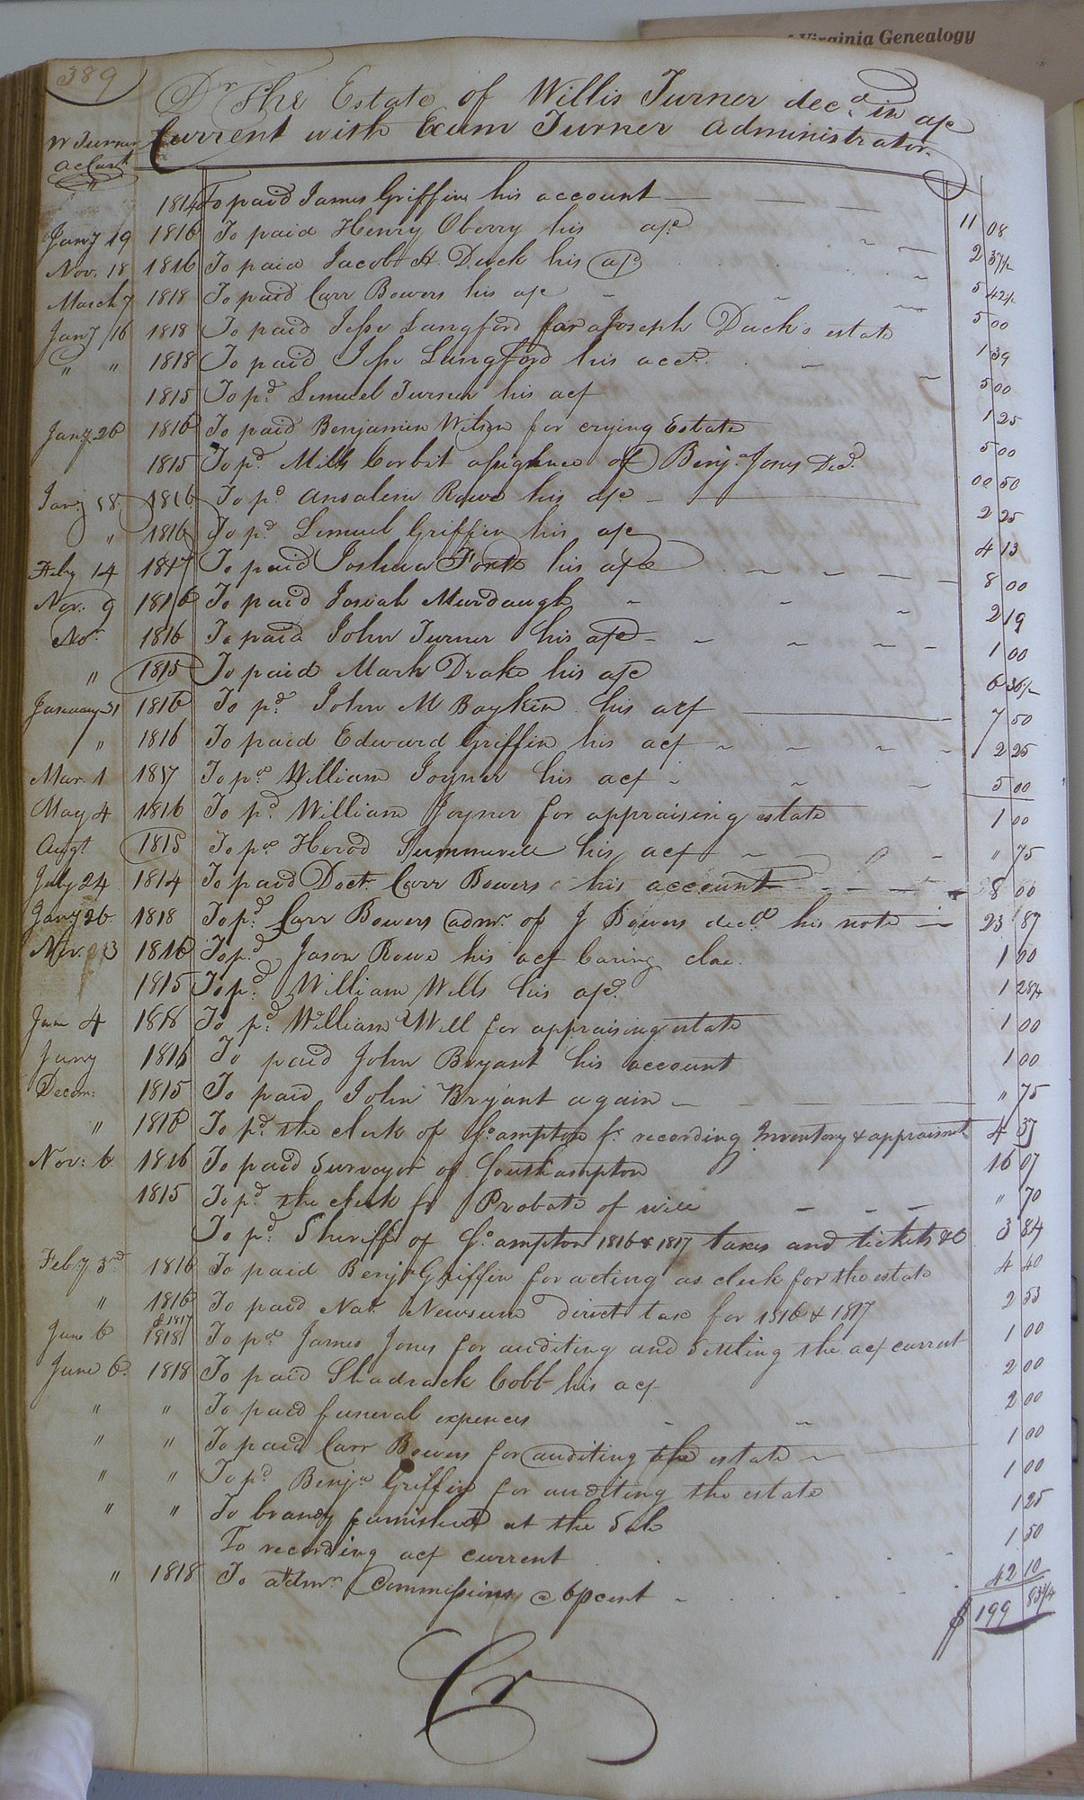 of Virginia Genealogy
389
Dr The Estate of Willis Turner decd. in a/c
W Turner
a/c Curt
Current with Exum Turner Administrator
1814 To paid James Griffin his account 11 08
Jany 19 1816 To paid Henry Oberry his a/c 2 37 1/2
Nov. 18 1816 To paid Jacob H. Duck his a/c 5 42 1/2
March 7 1818 To paid Carr Bowers his a/c 5 00
Jany 16 1818 To paid Jesse Langford for Joseph Duck's estate 1 39
" " 1818 To paid Jesse Langford his acct. 5 00
1815 To pd. Lemuel Turner his acf 1 25
Jany 26 1816 To paid Benjamin Wilson for crying Estate 5 00
1815 To pd. Mills Corbit assignee of Benja. Jones Decd. 00 50
Jany 18 1816 To pd. Ansalem Rowe his a/c 2 25
" 1816 To pd. Lemuel Griffin his a/c 4 13
Feby 14 1817 To paid Joshua Fort his a/c 8 00
Nov. 9 1816 To paid Josiah Murdaugh 2 19
No. 1816 To paid John Turner his a/c 1 00
" 1815 To paid Mark Drake his a/c 6 36 1/2
January 31 1816 To pd. John M Boykin his acf 7 50
" 1816 To paid Edward Griffin his acf 2 25
Mar 1 1817 To pd William Joyner his acf 5 00
May 4 1816 To pd. William Joyner for appraising estate 1 00
Augt 1815 To pd. Herod Summerell his acf " 75
July 24 1814 To paid Doct. Carr Bowers his account 8 00
Jany 26 1818 To pd. Carr Bowers admr. of J Bowers decd his note 23 87
Nov. 23 1816 To pd Jason Rowe his acf Caring &c. 1 00
1815 To pd. William Wells his a/c. 1 28 1/4
June 4 1818 To pd. William Well for appraising estate 1 00
Jany 1816 To paid John Bryant his account 1 00
Decem: 1815 To paid John Bryant again " 75
" 1816 To pd. the clerk of So.ampton fr recording Inventory & appraisment 4 37
Nov: 6 1816 To paid Surveyor of Southampton 16 07
1815 To pd. the clerk for Probate of will " 70
To pd. Sheriff of So.ampton 1816 & 1817 taxes and tickets &c 3 84
Feby 3rd 1816 To paid Benja Griffin for acting as clerk for the estate 4 40
" 1816 & 1817 To paid Nat. Newsum direct tax for 1816 & 1817 2 53
June 6 1818 To pd James Jones for auditing and settling the acf current 1 00
June 6. 1818 To paid Shadrack Cobb his acf 2 00
" " To paid funeral expences 2 00
" " To paid Carr Bowers for auditing the estate 1 00
" " To pd Benja Griffin for auditing the estate 1 00
" " To brandy furnished at the Sale 1 25
To recording acf current 1 50
" 1818 To admr. Commissions @ 6 p cent 42 10
$ 199 83 3/4
Cr